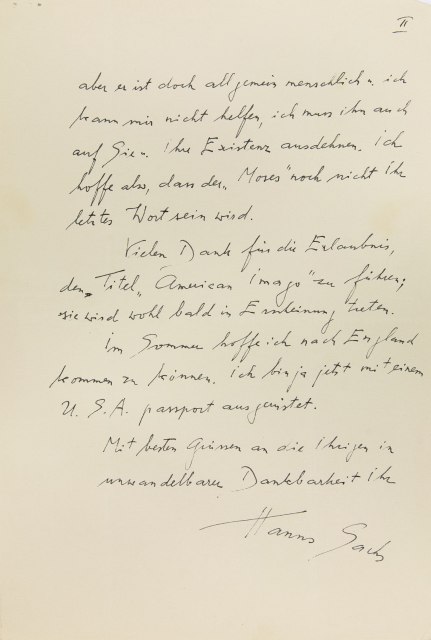 II
aber er ist doch allgemein menschlich u. ich
kann mir nicht helfen, ich muss ihn auch
auf Sie u. Ihre Existenz ausdehnen. Ich
hoffe also, dass der „Moses" noch nicht Ihr
letztes Wort sein wird.
Vielen Dank für die Erlaubnis,
den Titel „American Imago" zu führen;
sie wird wohl bald in Erscheinung treten.
Im Sommer hoffe ich nach England
kommen zu können. Ich bin ja jetzt mit einem
U.S.A. passport ausgerüstet.
Mit besten Grüssen an die Ihrigen in
unwandelbarer Dankbarkeit Ihr
Hanns Sachs